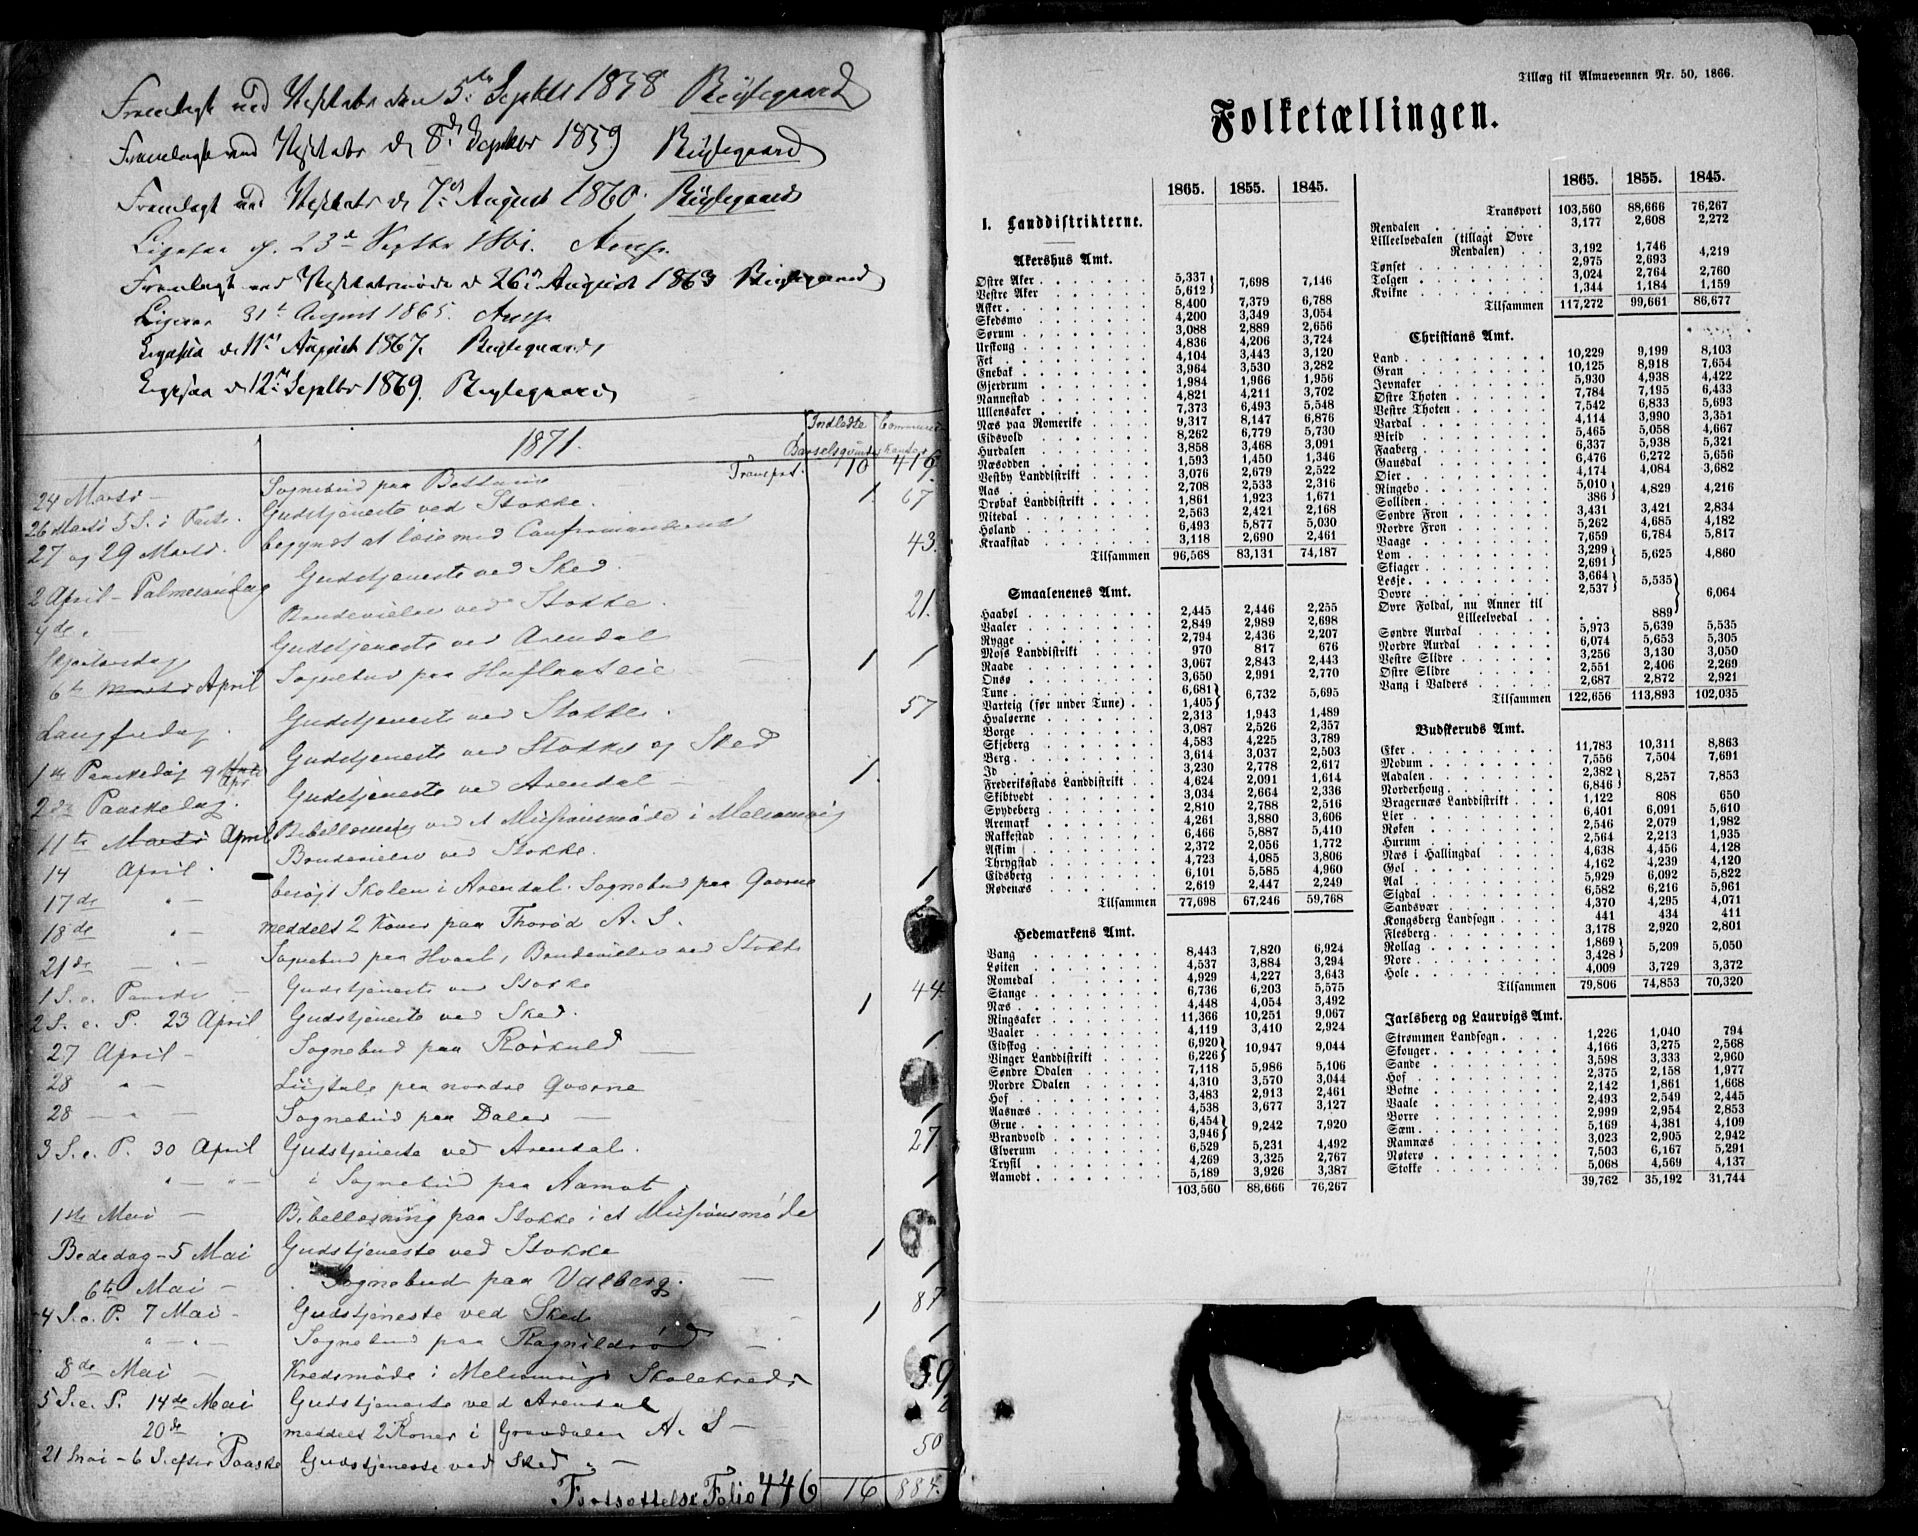 Fremlagt ved Visitats den 5te Septbr 1858 Bugtegaard
Fremlagt ved Visitats d 8de Septbr 1859
Fremlagt ved Visitats d 7de August 1860.
23de Septbr 1861.
Fremlagt ved Visitatsmøde d 26de August 1863
31te August 1865.
d 11te August 1867.
d 12te Septbr 1869.
1871.
Indledte Barselqvinder
Transpt. 10 416
24 Marts — Sognebud paa
26 Marts 5 S. i Faste. Gudstjeneste ved Stokke. 1 67
27 og 29 Marts. begyndt at læse med Confirmanderne
2 April - Palmesøndag Gudstjeneste ved Sked. 43
4de " — ved Stokke.
Skjærtorsdag Gudstjeneste ved Arendal 21.
6te April Sognebud paa 1 1
Langfredag. Gudstjeneste ved Stokke. 57
1ste Paaskedag 9 Apr Gudstjeneste ved Stokke og Sked
2den Paaskedag. Gudstjeneste ved Arendal — 1
11te April Bibellæsning ved et Missionsmøde i Melsomvig
14 April. ved Stokke.
17de " - besøgt Skolen i Arendal. Sognebud paa Qværne 1
18de " - meddelt 2 Koner paa Thorød A. S. 2
21de — " — Sognebud paa Hvaal, ved Stokke
1 S. e. Paaske — Gudstjeneste ved Stokke 44
2 S. e. P. 23 April Gudstjeneste ved Sked. 1
27 April - Sognebud paa Rørkuld — 1
28 " - paa nordre Qværne
28 — " — Sognebud paa Dalen — 1
3 S. e. P. 30 April Gudstjeneste ved Arendal. 27
" — " — Sognebud paa Aamot. 1
1ste Mai — Bibellæsning paa Stokke i et Missionsmøde
Bededag - 5 Mai Gudstjeneste ved Stokke 1
6te Mai — Sognebud paa Valberg. — 1
4 S. e. P. 7 Mai - Gudstjeneste ved Sked 1 87
" — " — Sognebud paa Ragnildrød — 1
8de Mai — Kredsmøde i Melsomvigs Skolekreds
5 S. e. P. 14de Mai Gudstjeneste ved Arendal 59
20de " meddelt 2 Koner i Gravdalen A. S — 2
21 Mai - 6 S. efter Paaske Gudstjeneste ved Sked " — 50
Fortsættelse Folio 446 16 884.
Tillæg til Almuevennen Nr. 50, 1866.
Folketællingen.
1865. 1855. 1845.
I. Landdistrikterne.
Akershus Amt.
Østre Aker . . . 5,337 } 7,698 7,146
Vestre Aker . . . 5,612 }
Asker . . . 8,400 7,379 6,788
Skedsmo . . . 4,200 3,349 3,054
Sørum . . . 3,088 2,889 2,656
Urskoug . . . 4,836 4,206 3,724
Fet . . . 4,104 3,443 3,120
Enebak . . . 3,964 3,530 3,282
Gjerdrum . . . 1,984 1,966 1,956
Nannestad . . . 4,821 4,211 3,702
Ullensaker . . . 7,373 6,493 5,548
Næs paa Romerike . . 9,317 8,147 6,876
Eidsvold . . . 8,262 6,779 5,730
Hurdalen . . . 3,858 3,468 3,091
Næsodden . . . 1,593 1,450 1,346
Vestby Landdistrikt . . 3,076 2,679 2,522
Aas . . . 2,708 2,533 2,316
Drøbak Landdistrikt . . 1,861 1,923 1,671
Nitedal . . . 2,563 2,421 2,168
Høland . . . 6,493 5,877 5,030
Kraakstad . . . 3,118 2,690 2,461
Tilsammen 96,568 83,131 74,187
Smaalenenes Amt.
Haabøl . . . 2,445 2,446 2,255
Vaaler . . . 2,849 2,989 2,698
Rygge . . . 2,794 2,436 2,207
Moss Landdistrikt . . 970 817 676
Raade . . . 3,067 2,843 2,443
Onsø . . . 3,650 2,991 2,770
Tune . . . 6,681 } 6,732 5,695
Varteig (før under Tune) . . 1,405 }
Hvaløerne . . . 2,313 1,943 1,489
Borge . . . 3,087 2,526 2,357
Skjeberg . . . 4,583 4,225 3,789
Berg . . . 3,614 3,037 2,503
Id . . . 3,230 2,778 2,617
Frederiksstads Landdistrikt . 4,624 2,091 1,614
Skibtvedt . . . 3,034 2,664 2,336
Spydeberg . . . 2,810 2,788 2,516
Aremark . . . 4,261 3,880 3,606
Rakkestad . . . 6,466 5,887 5,410
Askim . . . 2,372 2,056 1,772
Thrygstad . . . 4,723 4,085 3,806
Eidsberg . . . 6,101 5,585 4,960
Rødenæs . . . 2,619 2,447 2,249
Tilsammen 77,698 67,246 59,768
Hedemarkens Amt.
Vang . . . 8,443 7,820 6,924
Løiten . . . 4,537 3,884 3,294
Romedal . . . 4,929 4,227 3,643
Stange . . . 6,736 6,203 5,575
Næs . . . 4,448 4,054 3,492
Ringsaker . . . 11,366 10,251 9,067
Vaaler . . . 4,119 3,410 2,924
Eidskog . . . 6,920 } 10,947 9,044
Vinger Landdistrikt . . 6,226 }
Søndre Odalen . . . 7,118 5,986 5,106
Nordre Odalen . . . 4,310 3,570 3,044
Hof . . . 3,483 2,913 2,461
Aasnæs . . . 4,538 3,677 3,127
Grue . . . 6,454 } 9,242 7,920
Brandvold . . . 3,946 }
Elverum . . . 6,529 5,231 4,492
Trysil . . . 4,269 3,325 2,767
Aamodt . . . 5,189 3,926 3,387
103,560 88,666 76,267
1865. 1855. 1845.
Transport 103,560 88,666 76,267
Rendalen . . . 3,177 2,608 2,272
Lilleelvedalen (tillagt Øvre
Rendalen) . . 3,192 1,746 4,219
Tønset . . . 2,975 2,693
Tolgen . . . 3,024 2,764 2,760
Kvikne . . . 1,344 1,184 1,159
Tilsammen 117,272 99,661 86,677
Christians Amt.
Land . . . 10,229 9,199 8,103
Gran . . . 10,125 8,918 7,654
Jevnaker . . . 5,930 4,938 4,422
Østre Thoten . . . 7,784 7,195 6,433
Vestre Thoten . . . 7,542 6,833 5,693
Vardal . . . 4,114 3,990 3,351
Birid . . . 5,465 5,058 4,667
Faaberg . . . 6,337 5,938 5,321
Gausdal . . . 6,476 6,272 5,656
Øier . . . 4,174 4,084 3,682
Ringebo . . . 5,010 } 4,829 4,216
Solliden . . . 386 }
Søndre Fron . . . 3,431 3,421 2,834
Nordre Fron . . . 5,262 4,685 4,182
Vaage . . . 7,659 6,784 5,817
Lom . . . 3,299 } 5,625 4,860
Skiager . . . 2,691 }
Lesje . . . 3,664 } 5,535 } 6,064
Dovre . . . 2,537 }
Øvre Foldal, nu Anner til
Lilleelvedal . . . . 889 }
Søndre Aurdal . . . 5,973 5,639 5,535
Nordre Aurdal . . . 6,074 5,653 5,305
Vestre Slidre . . . 3,256 3,130 3,050
Østre Slidre . . . 2,551 2,406 2,269
Vang i Valders . . . 2,687 2,872 2,921
Tilsammen 122,656 113,893 102,035
Buskeruds Amt.
Eker . . . 11,783 10,311 8,863
Modum . . . 7,556 7,504 7,691
Aadalen . . . 2,382 } 8,257 7,853
Norderhoug . . . 6,846 }
Bragernæs Landdistrikt . . 1,122 808 650
Lier . . . 6,401 6,091 5,610
Røken . . . 2,546 2,079 1,982
Hurum . . . 2,564 2,213 1,935
Næs i Hallingdal . . . 4,638 4,456 4,128
Gol . . . 4,162 4,239 4,120
Aal . . . 5,929 6,092 5,822
Sigdal . . . 6,582 6,216 5,961
Sandsvær . . . 4,370 4,295 4,071
Kongsberg Landsogn . . 441 434 411
Flesberg . . . 3,178 2,920 2,801
Rollag . . . 1,869 } 5,209 5,050
Nore . . . 3,428 }
Hole . . . 4,009 3,729 3,372
Tilsammen 79,806 74,853 70,320
Jarlsberg og Laurvigs Amt.
Strømmen Landsogn . . 1,226 1,040 794
Skouger . . . 4,166 3,275 2,568
Sande . . . 3,598 3,333 2,960
Hof . . . 2,375 2,158 1,977
Botne . . . 2,142 1,861 1,668
Vaale . . . 2,493 2,549 2,445
Borre . . . 2,999 2,954 2,853
Sæm . . . 5,169 4,381 4,109
Ramnæs . . . 3,023 2,905 2,942
Nøterø . . . 7,503 6,167 5,291
Stokke . . . 5,068 4,569 4,137
39,762 35,192 31,744